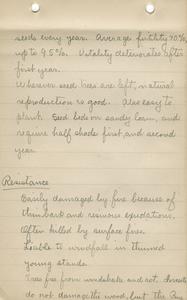 seeds every year. Average fertility 70%,
up to 95%. Vitality deteriorates after
first year.
Wherever seed trees are left, natural
reproduction is good. Also easy to
plant. Seed beds on sandy loam, and
require half shade first and second
year.
Resistance
Easily damaged by fire because of
thin bark and resinous exudations.
Often killed by surface fires.
Liable to windfall in thinned
young stands.
Trees free from windshake and rot.
do not damage the wood, but the